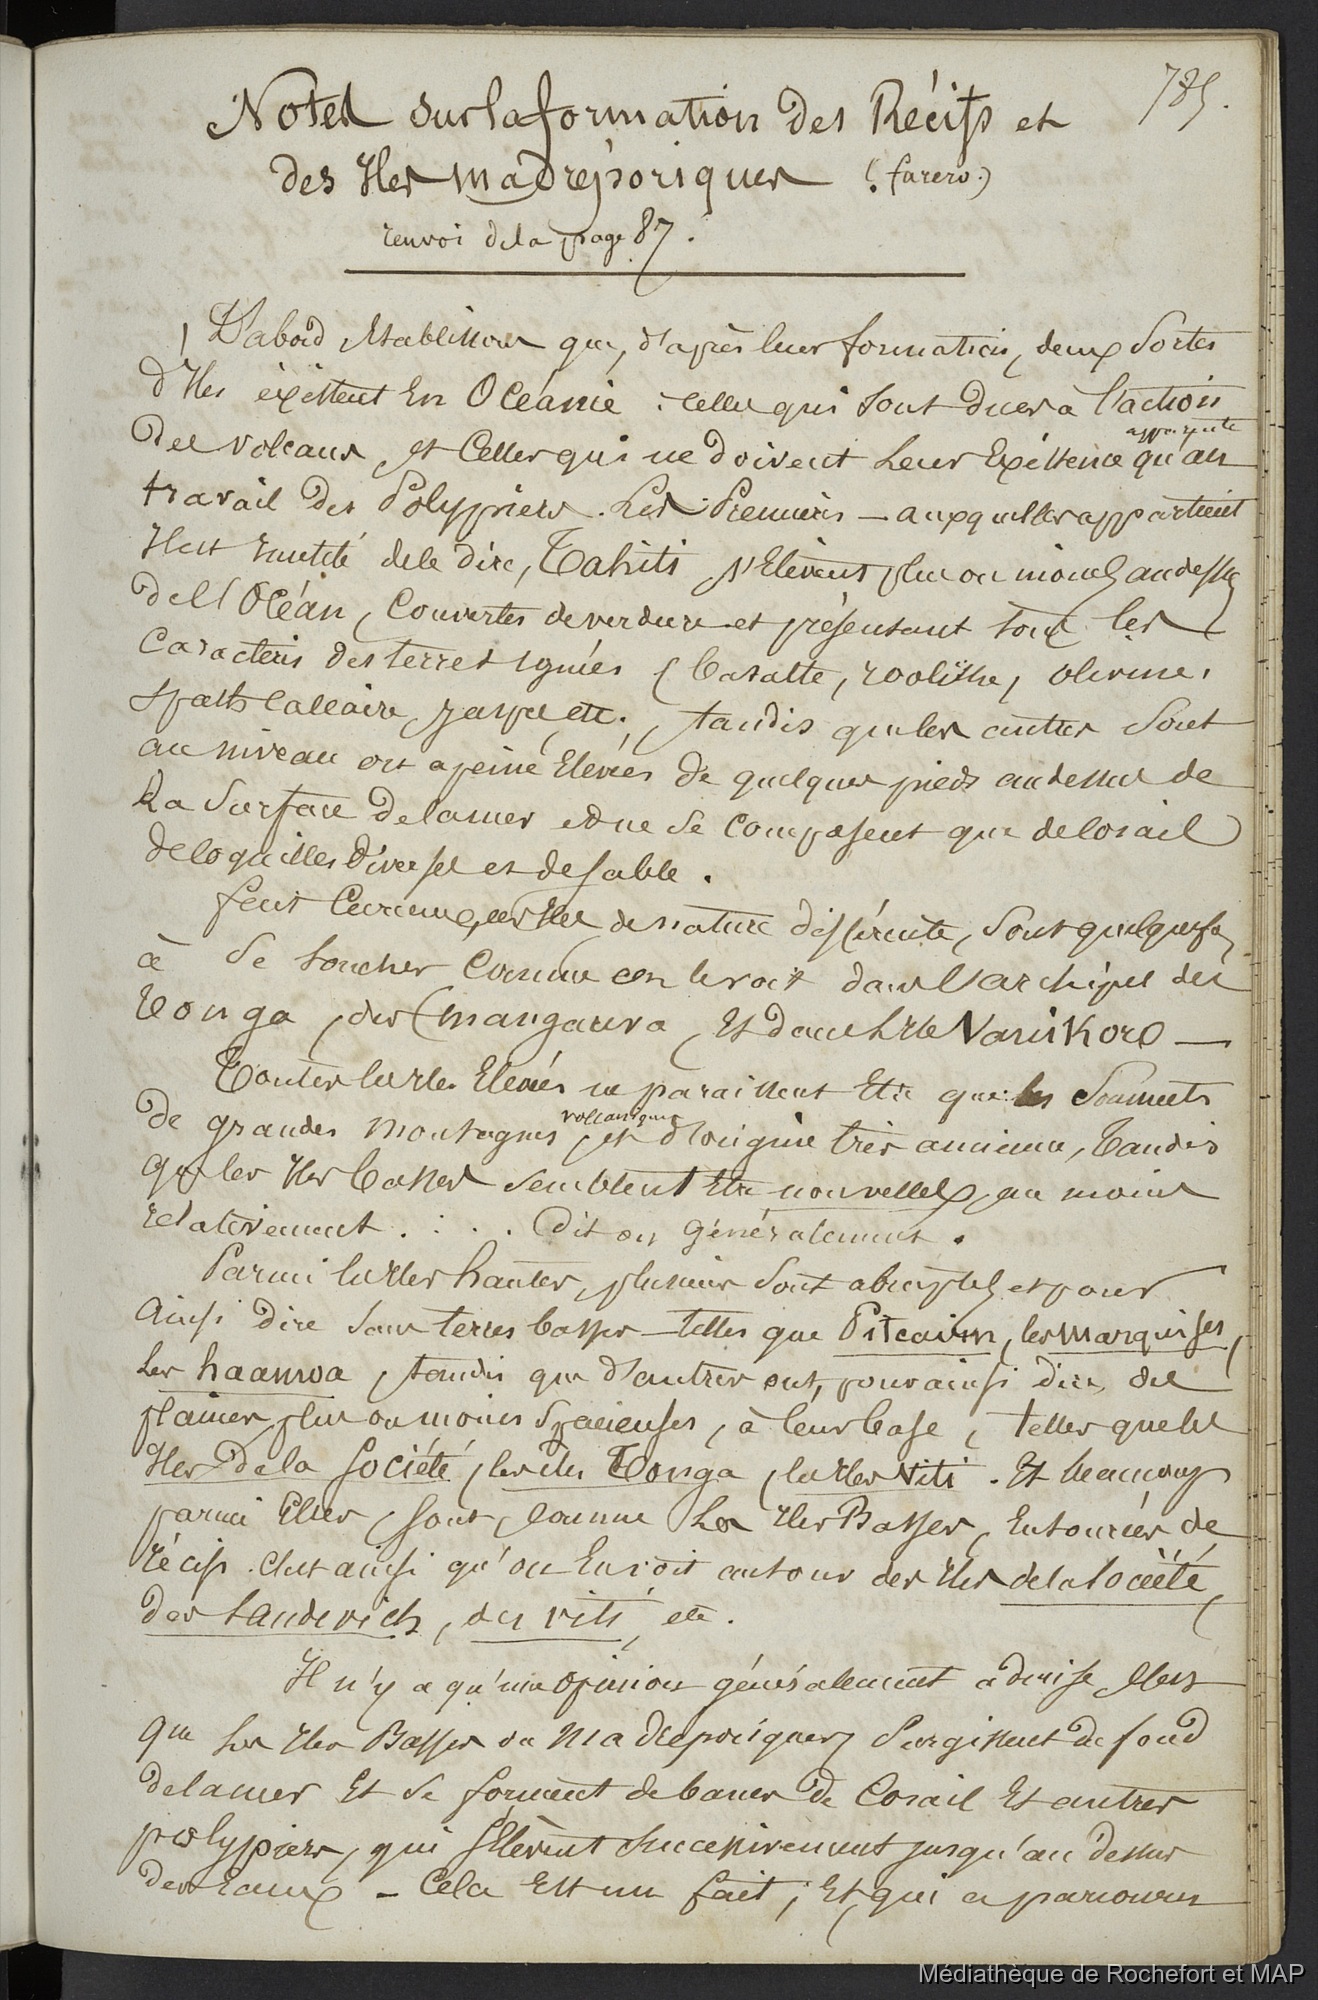 785.
Notes sur la formation des Récifs et
des Iles madréporiques (farero.)
renvoi de la page 87.
D'abord établissons que, d'après leur formation, deux sortes
d'Iles existent En Océanie : celles qui sont dues à l'action
des volcans, et Celles qui ne doivent Leur Existence apparente qu'au
travail des Polypiers. Les Premieres — auxquelles appartient
Il est inutile de le dire, Tahiti s'Elèvent plus ou moins au dessus
de l'Océan, Couvertes de verdure et présentant tous les
caracteres des terres ignées (basalte, zoolithe, olivine,
spath calcaire, jaspe, etc., tandis que les autres sont
au niveau ou a peine Elevées de quelques pieds au dessus de
La Surface de la mer et ne se composent que de Corail
de Coquilles diverses et de sable.
ces Iles de nature différente, sont quelquefois
à se toucher Comme on le voit dans l'archipel des
Tonga, des mangareva, Et dans L'Ile Vanikoro —
Toutes les Iles Elevées ne paraissent Etre que les Sommets
de grandes montagnes volcaniques, et d'origine très ancienne, Tandis
que les Iles basses semblent Etre nouvelles, au moins
relativement . . . . Dit on généralement.
Parmi les Iles hautes, plusieurs sont abruptes et pour
ainsi dire sans terres basses — telles que Pitcairn, les marquises,
Les haamoa, tandis que d'autres ont, pour ainsi dire, des
plaines plus ou moins spacieuses, à leur base, telles que les
Iles de la Société, les Iles Tonga, les Iles Viti. Et beaucoup
parmi Elles, sont, comme Les Iles Basses, Entourées de
récifs. C'est ainsi qu'on En voit autour des Iles de la Société,
des Sandwich, des viti, etc.
Il n'y a qu'une opinion généralement admise c'est
que Les Iles Basses ou Madréporiques surgissent du fond
de la mer Et se forment de bancs de Corail Et autres
polypiers, qui s'Elèvent successivement jusqu'au dessus
des Eaux — Cela Est un fait ; Et, qui a parcouru
Médiathèque de Rochefort et MAP